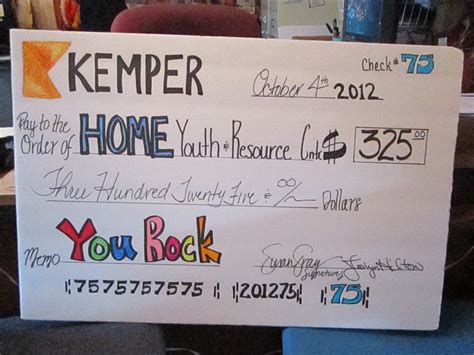 KEMPER
Check # 75
October 4th 2012
Pay to the
Order of HOME Youth & Resource Cntr $ 325.00
Three Hundred Twenty Five & 00/ Dollars
Memo You Rock
Signatures
⑆7575757575 ⑆201275⑆ 75⑆